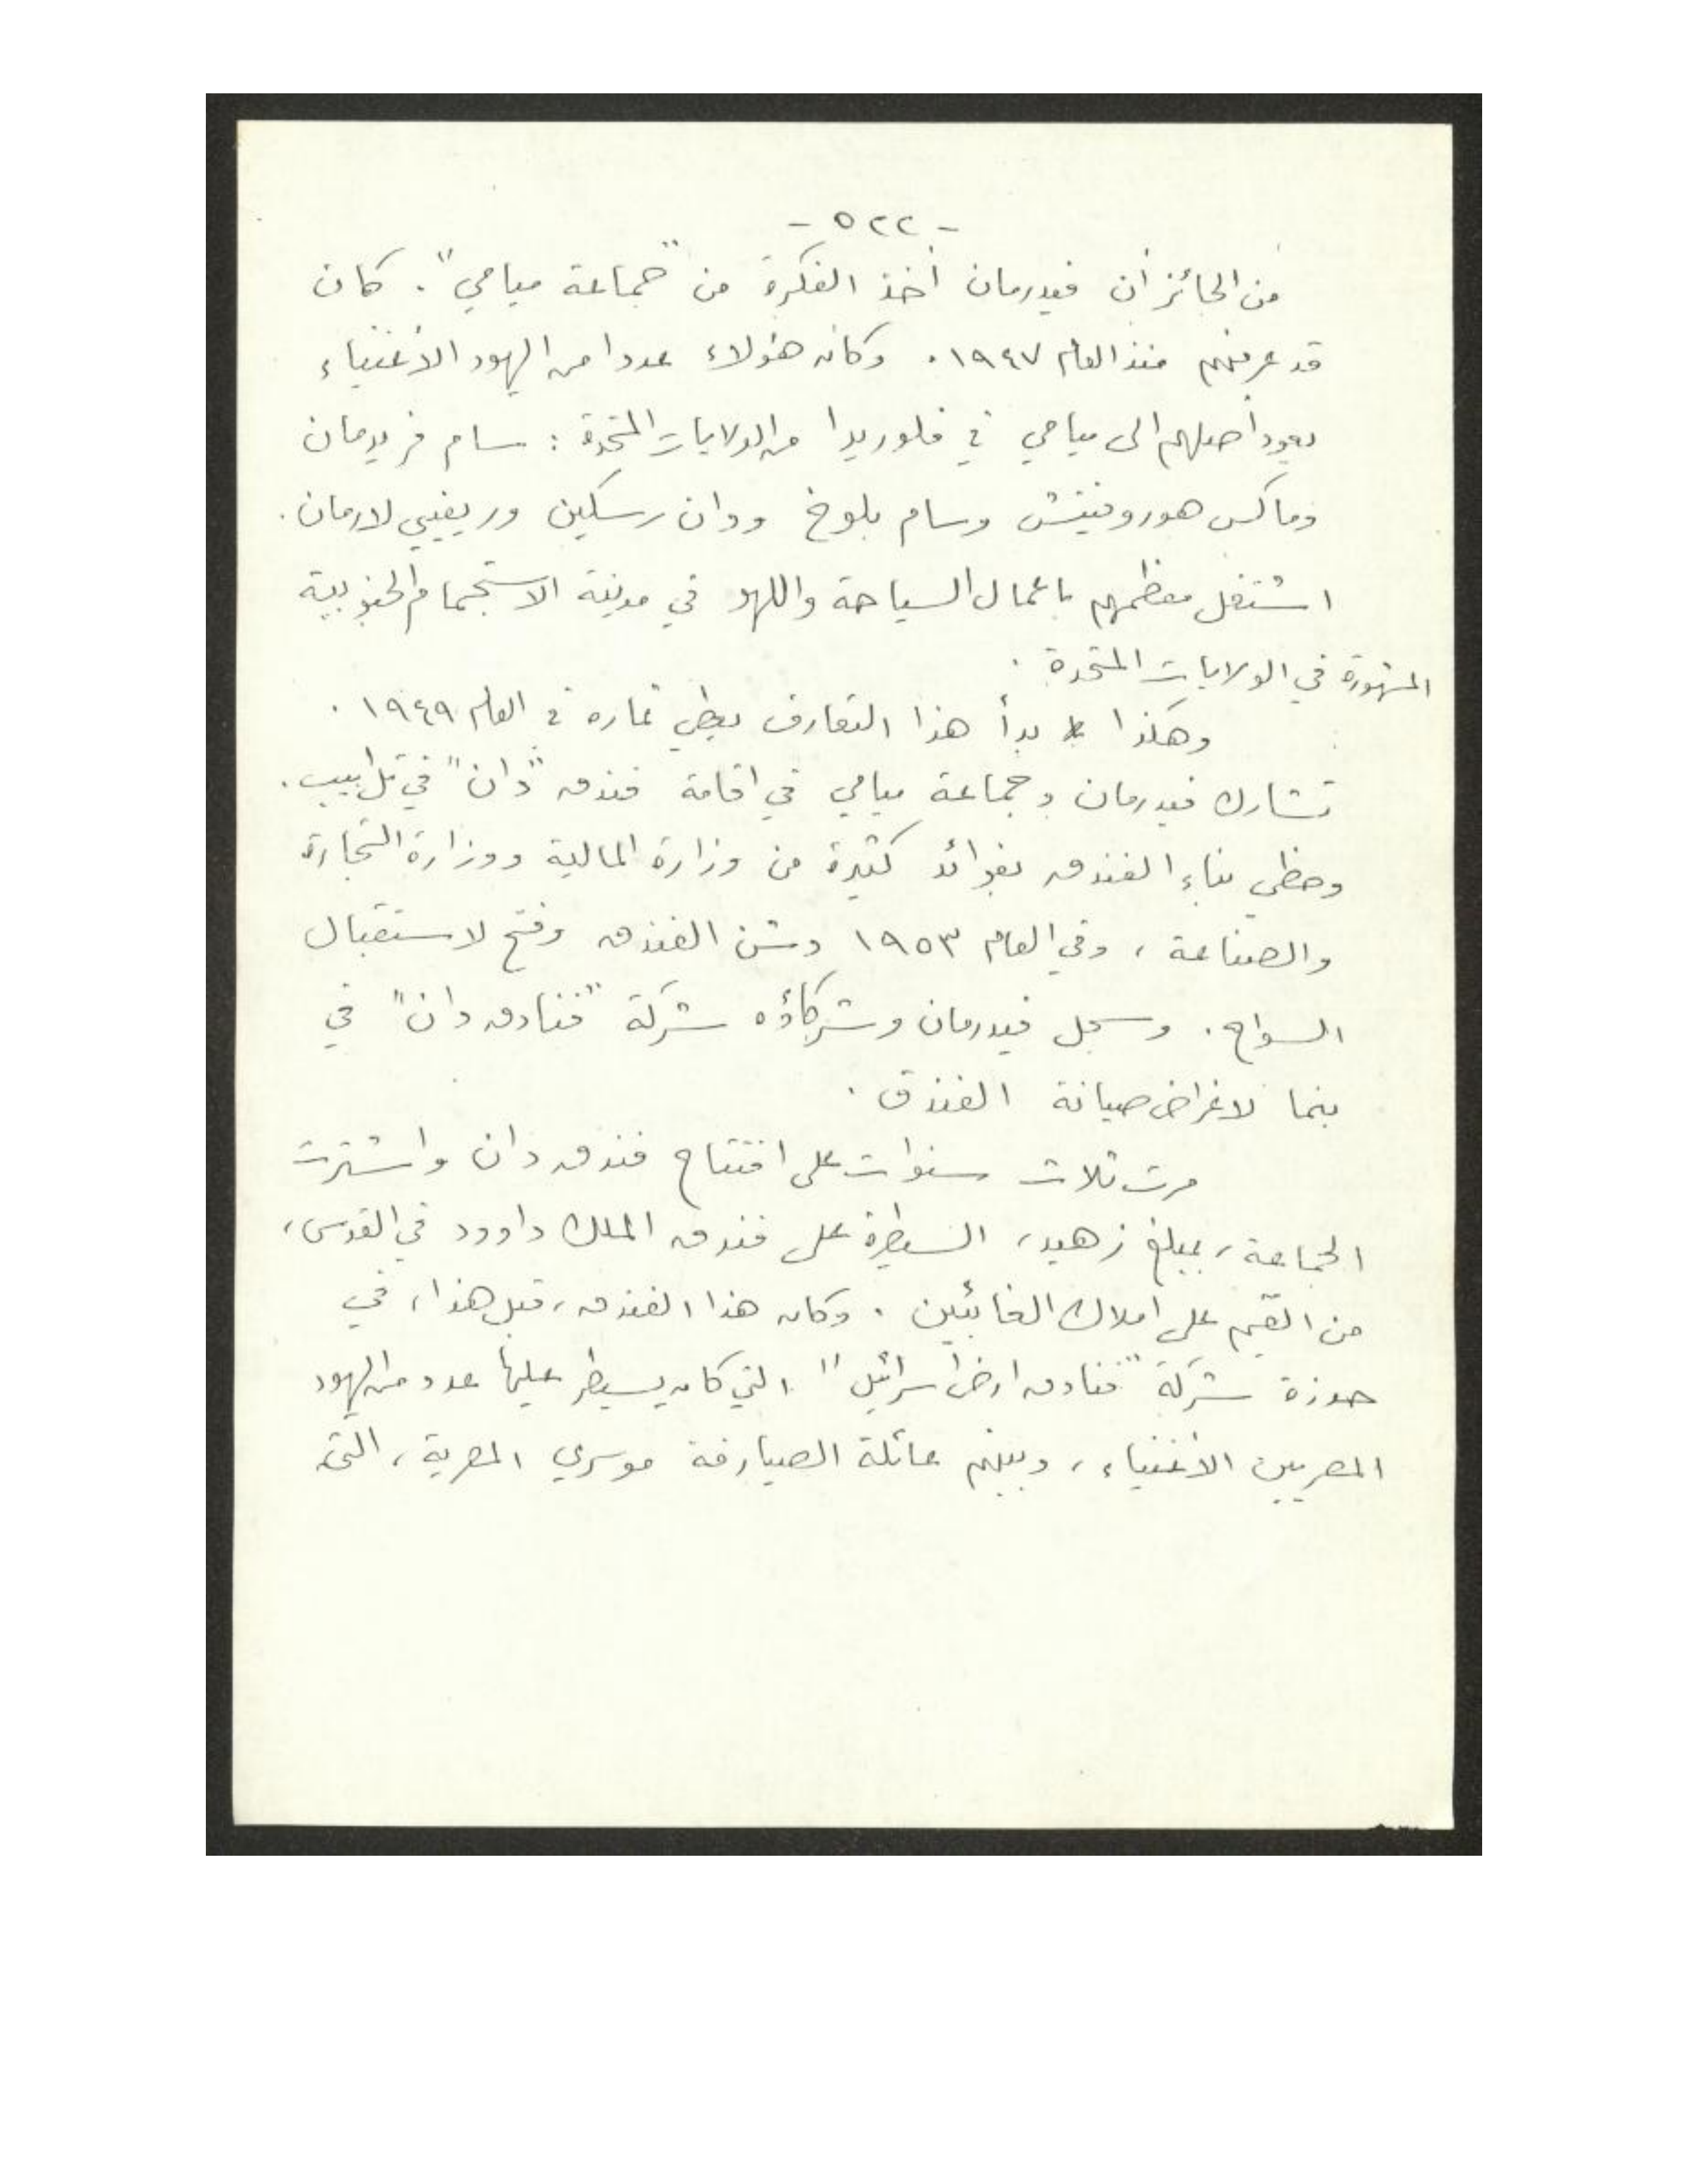 - ٥٢٢ -
من الجائز أن فيدرمان أخذ الفكرة من "جماعة ميامي". كان
قد عرفهم منذ العام ١٩٤٧. وكان هؤلاء عددا من اليهود الأغنياء
يعود أصلهم الى ميامي في فلوريدا من الولايات المتحدة : سام فريدمان
وماكس هوروفيتش وسام بلوخ ودان رسكين وريفيي لارمان.
اشتغل معظمهم باعمال السياحة واللهو في مدينة الاستجمام الجنوبية
المشهورة في الولايات المتحدة .
وهكذا بدأ هذا التعارف يعطي ثماره في العام ١٩٤٩ .
تشارك فيدرمان وجماعة ميامي في اقامة فندق "دان" في تل ابيب.
وحظي بناء الفندق بفوائد كثيرة من وزارة المالية ووزارة التجارة
والصناعة ، وفي العام ١٩٥٣ دشن الفندق وفتح لاستقبال
السواح . وسجل فيدرمان وشركاؤه شركة "فنادق دان" في
بنما لاغراض صيانة الفندق .
مرت ثلاث سنوات على افتتاح فندق دان واشترت
الجماعة ، بمبلغ زهيد ، السيطرة على فندق الملك داوود في القدس ،
من القيّم على املاك الغائبين . وكان هذا الفندق ، قبل هذا ، في
حوزة شركة "فنادق ارض اسرائيل" التي كان يسيطر عليها عدد من اليهود
المصريين الأغنياء ، وبينهم عائلة الصيارفة موسري المصرية ، التي